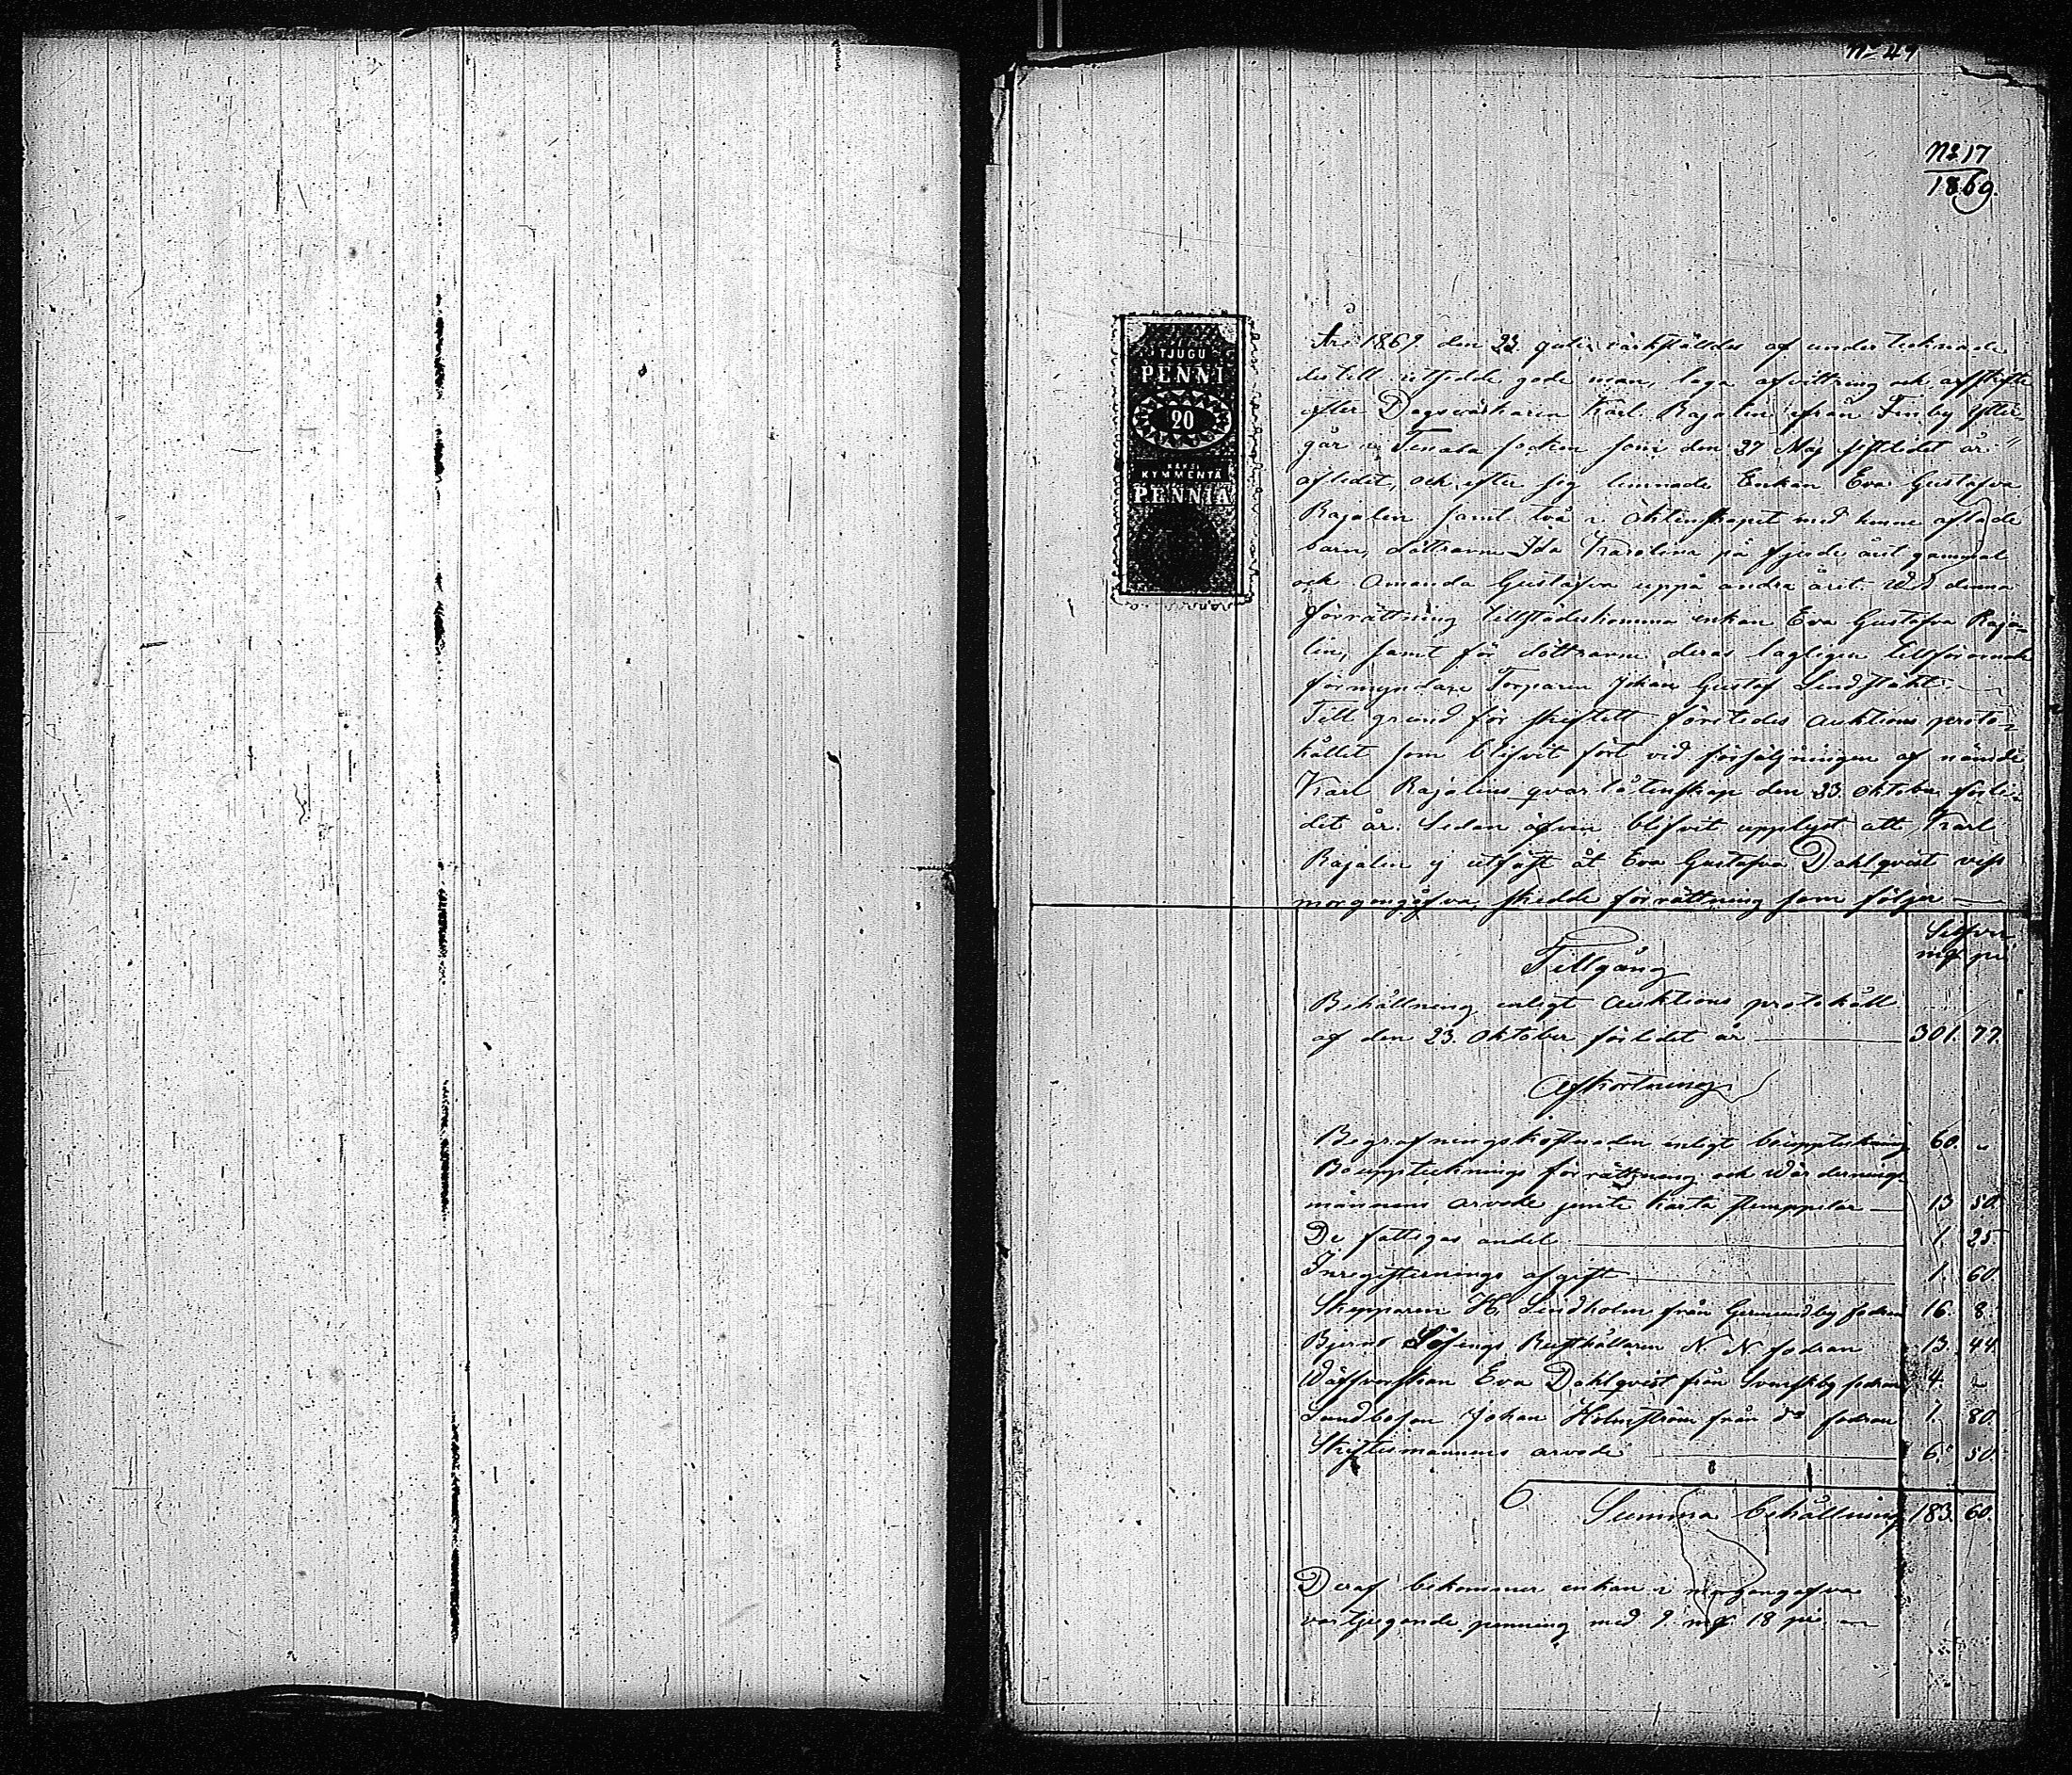 No 47
No 17
1869.
TJUGU
PENNI
20
KAKSI
KYMMENTÄ
PENNIÄ
År 1869 den 23 juli värkställdes af undertecknade
dertill utsedde gode män, laga afvittring och arfskifte
efter Dagsverkaren Karl Rajalin ifrån Finby Ytter-
går i Tenala socken som den 27 Maj sistledet år
aflidit, och efter sig lemnade Enkan Eva Gustafva
Rajalin samt två i äktenskapet med henne aflade
barn, döttrarne Ida Karolina på fjerde året gammal
och Amanda Gustafva uppå andra året. Wid denna
förrättning tillstädeskommo enkan Eva Gustafva Raja-
lin, samt för döttrarne deras lagligen tillförordnade
förmyndare Torparen Johan Gustaf Lindståhl.
Till grund för skiftett företedes Auktions proto-
kållet som blifvit fört vid försäljningen af nämnde
Karl Rajalins qvarlåtenskap den 23. Oktober förle-
det år. Sedan äfven blifvit upplyst att Karl
Rajalin ej utfäst åt Eva Gustafva Dahlqvist viss
morgongåfva, skedde förrättning som följer
Silfver
mk pi
Tillgång
Behållning enligt Auktions protokåll
af den 23. Oktober förledet år 301. 77.
Afkortning
Begrafningskostnaden enligt bouppteckning 60. "
Bouppteknings förrättning och Wärderings-
männens arvode jemte Karta stemppelar 13 50.
De fattigas andel 1 25
Inregisternings afgift 1. 60.
Skepparen H. Lindholm från Germundby fodran 16. 8
Bjernå Rusthållaren N N fodran 13. 44.
Eva Dahlqvist från Svenskby fodran 4. "
Johan Holmström från do fodran 1. 80.
Skiftesmännens arvode 6. 50.
Summa behållning 183. 60.
Deraf bekommer enkan i morgongåfva
vartjugonde penning med 9 mk 18 pi